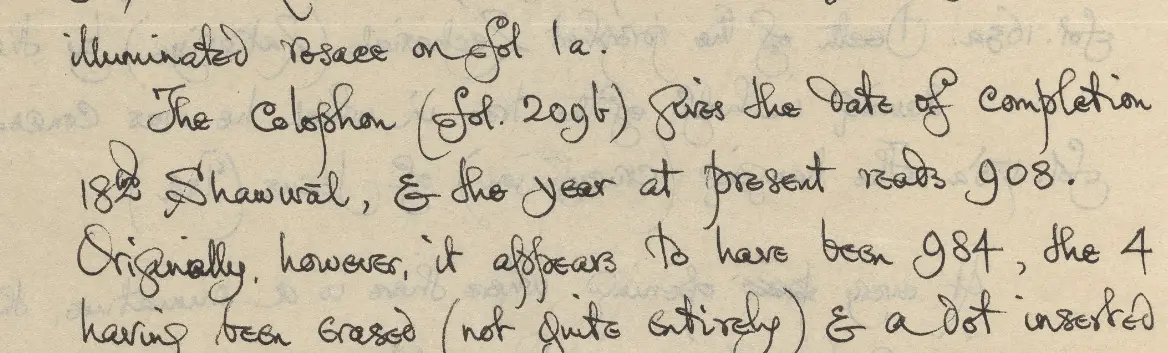 illuminated rosace on fol 1a.
The Colophon (fol. 209b) gives the date of completion
18th Shawwāl, & the year at present reads 908.
Originally, however, it appears to have been 984, the 4
having been erased (not quite entirely) & a dot inserted